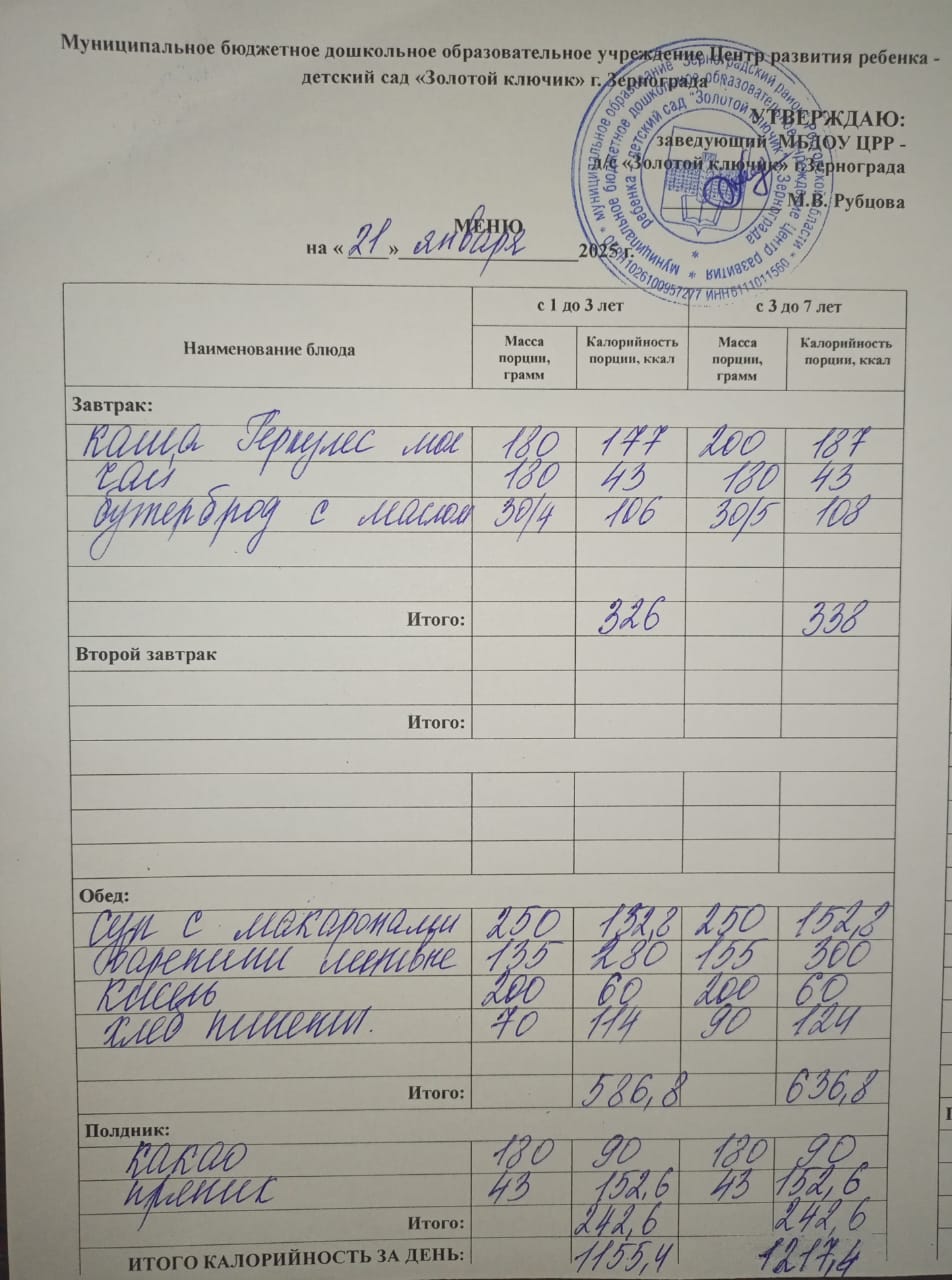 Муниципальное бюджетное дошкольное образовательное учреждение Центр развития ребенка -
детский сад «Золотой ключик» г. Зернограда
УТВЕРЖДАЮ:
заведующий МБДОУ ЦРР -
д/с «Золотой ключик» г.Зернограда
М.В. Рубцова
МЕНЮ
на « 21 » января 2025 г.
Наименование блюда с 1 до 3 лет с 3 до 7 лет
Масса порции, грамм Калорийность порции, ккал Масса порции, грамм Калорийность порции, ккал
Завтрак:
каша Геркулес мол 180 177 200 187
чай 180 43 180 43
бутерброд с маслом 30/4 106 30/5 108
Итого: 326 338
Второй завтрак
Итого:
Обед:
суп с макаронами 250 152,8 250 152,8
вареники ленивые 135 280 155 300
кисель 200 60 200 60
хлеб пшенич. 70 114 90 124
Итого: 586,8 636,8
Полдник:
какао 180 90 180 90
пряник 43 152,6 43 152,6
Итого: 242,6 242,6
ИТОГО КАЛОРИЙНОСТЬ ЗА ДЕНЬ: 1155,4 1217,4